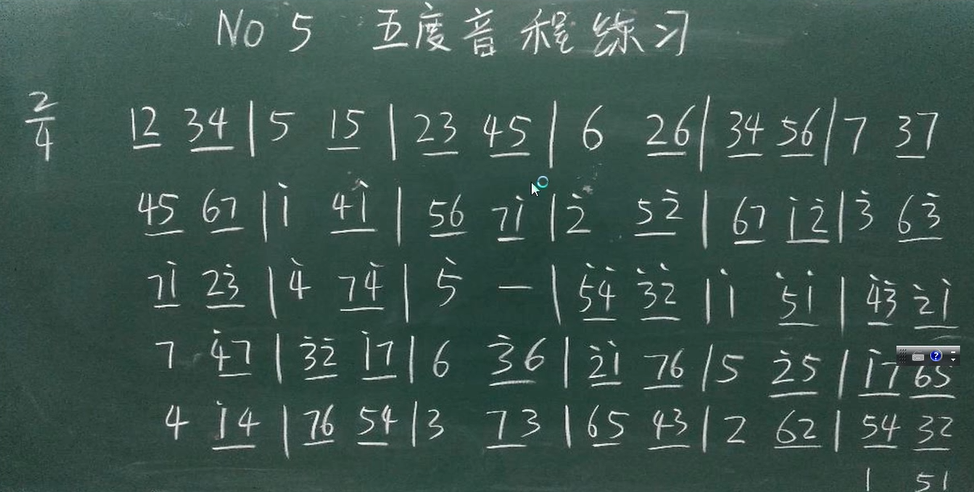 NO 5 五度音程练习
2/4 12 34 | 5 15 | 23 45 | 6 26 | 34 56 | 7 37
45 67 | i 4i | 56 7i | 2̇ 52̇ | 67 i2̇ | 3̇ 63̇
7i 2̇3̇ | 4̇ 74̇ | 5̇ — | 5̇4̇ 3̇2̇ | i 5̇i | 4̇3̇ 2̇i
7 4̇7 | 3̇2̇ i7 | 6 3̇6 | 2̇i 76 | 5 2̇5 | i7 65
4 i4 | 76 54 | 3 73 | 65 43 | 2 62 | 54 32
1 51